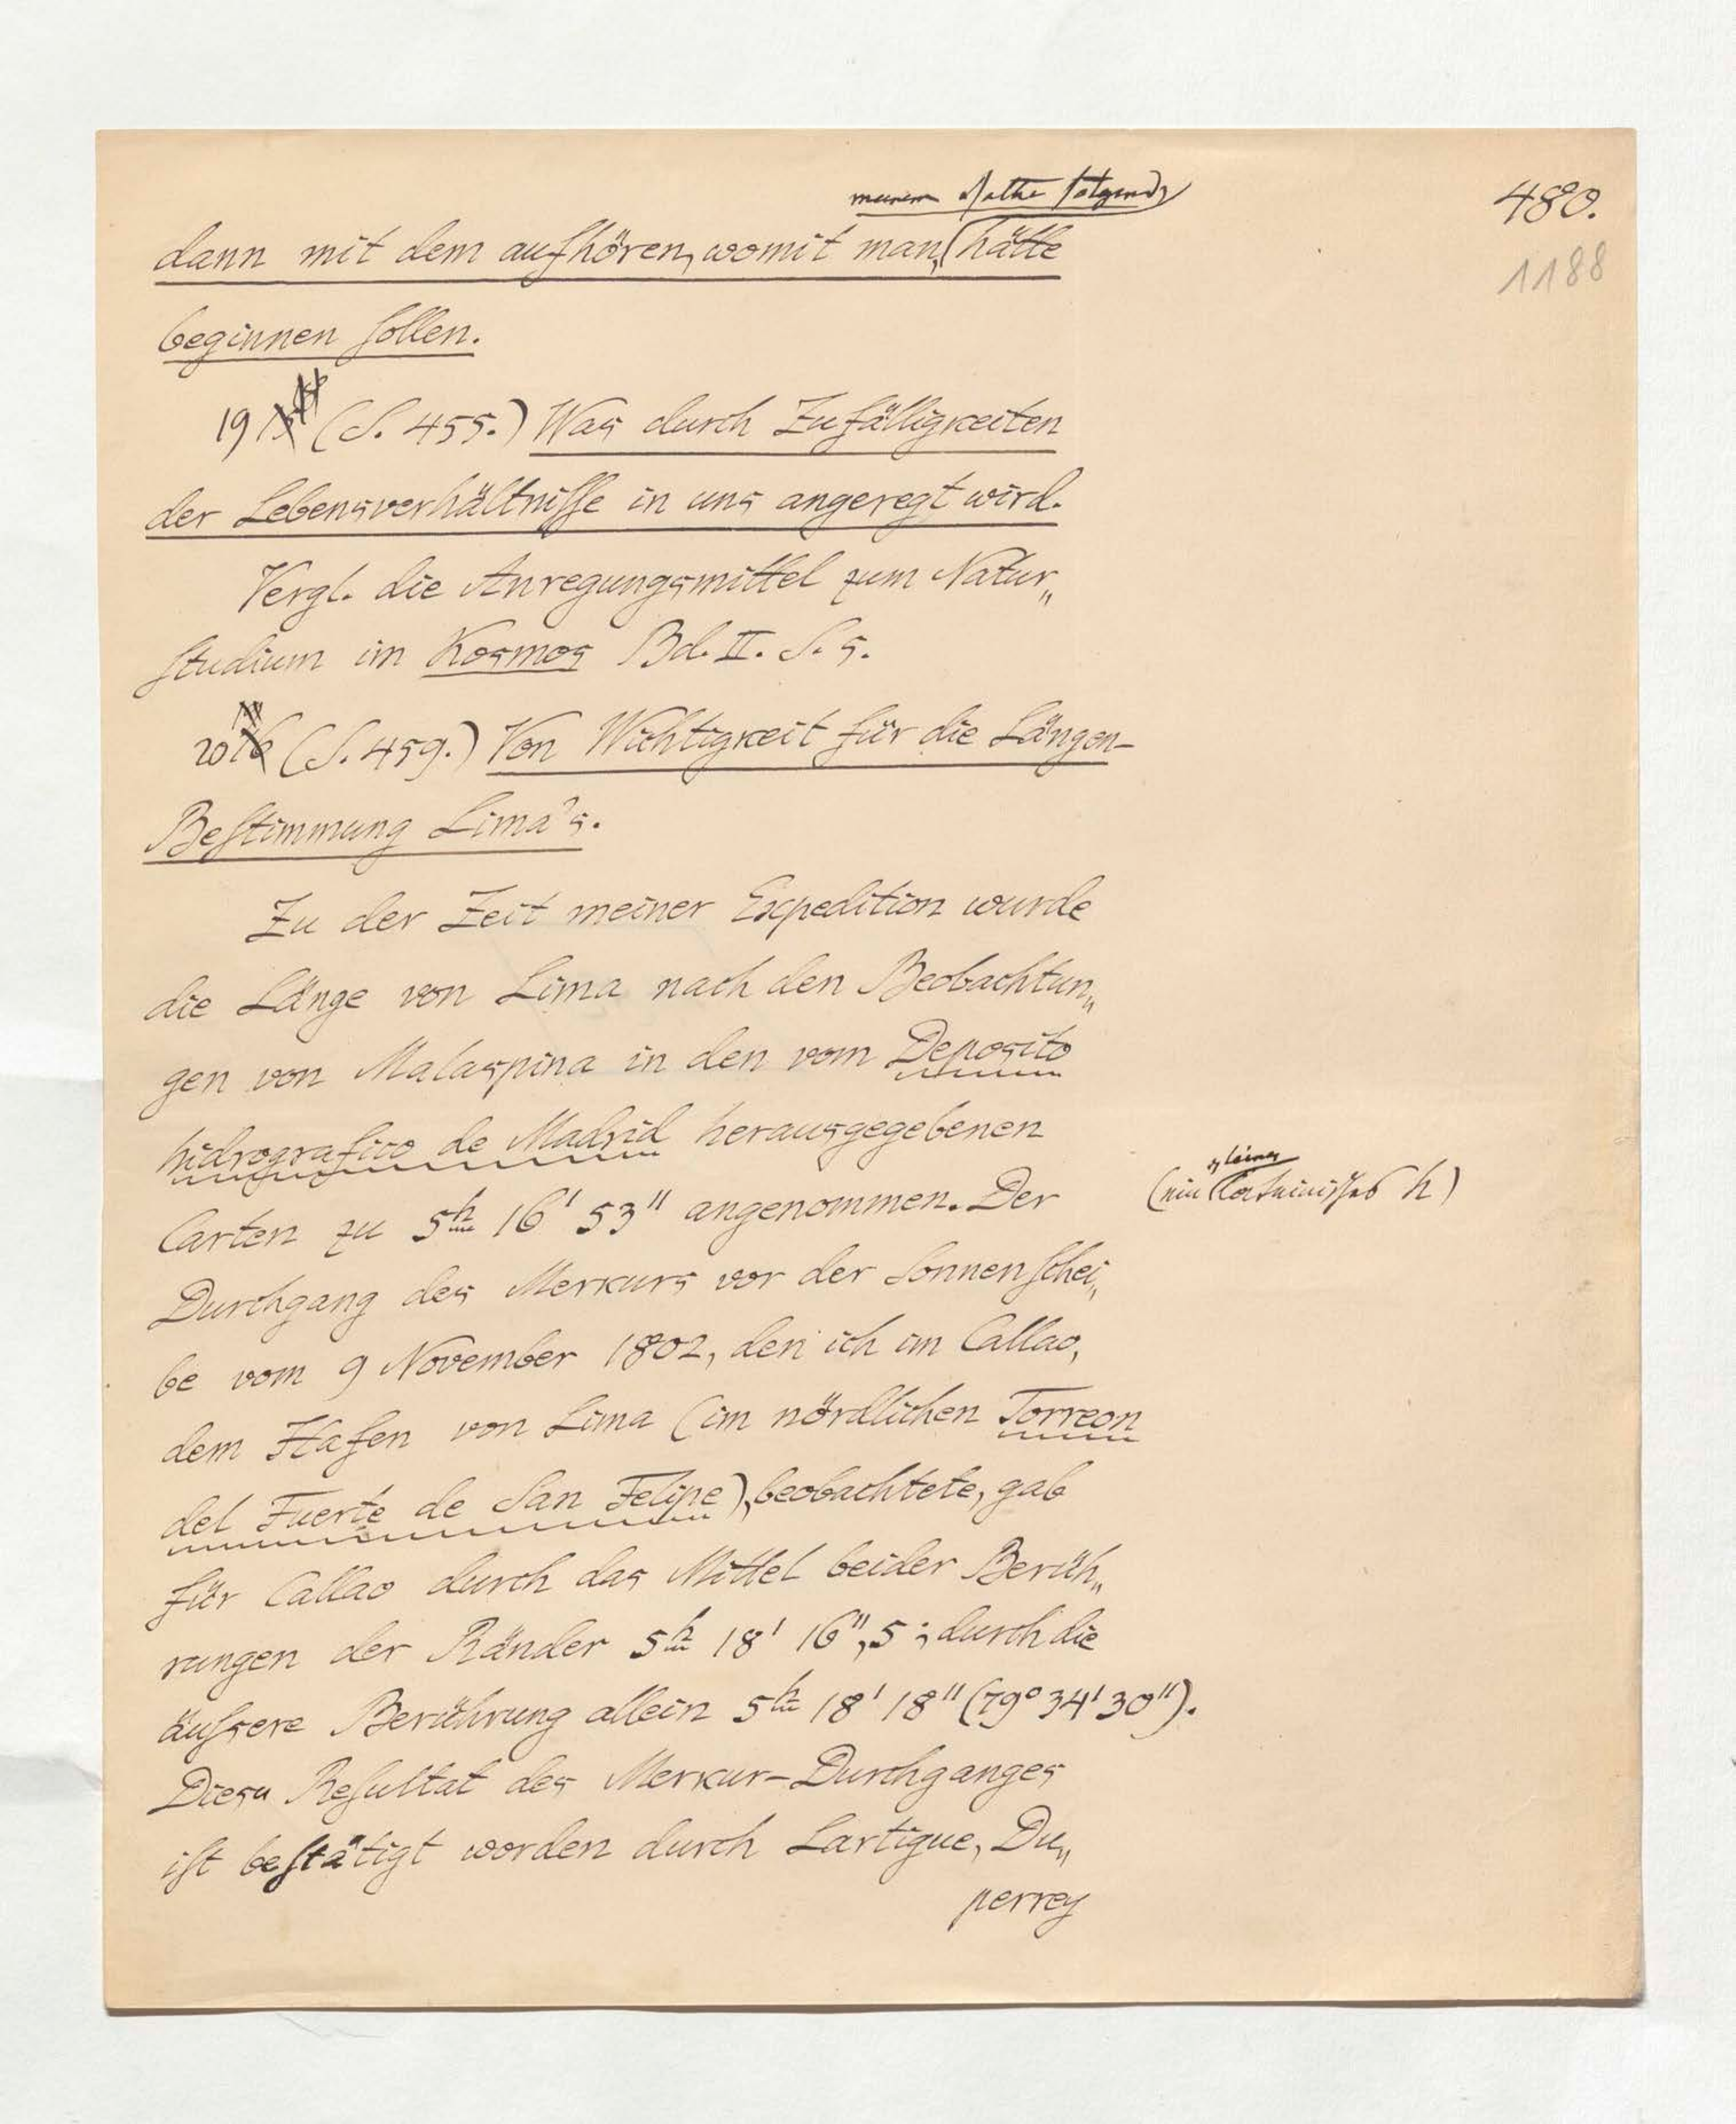 meinem Rathe folgend,
480.
dann mit dem aufhören, womit man hätte
1188
beginnen sollen.
19 (S. 455.) Was durch Zufälligkeiten
der Lebensverhältnisse in uns angeregt wird.
Vergl. die Anregungsmittel zum Natur„
studium im Kosmos Bd. II. S. 5.
20 (S. 459.) Von Wichtigkeit für die Längen-
Bestimmung Lima's.
Zu der Zeit meiner Expedition wurde
die Länge von Lima nach den Beobachtun„
gen von Malaspina in den vom Deposito
hidrografico de Madrid herausgegebenen
Carten zu 5h 16' 53" angenommen. Der
(ein kleines lateinisches h)
Durchgang des Merkurs vor der Sonnenschei„
be vom 9 November 1802, den ich im Callao,
dem Hafen von Lima (im nördlichen Torreon
del Fuerte de San Felipe), beobachtete, gab
für Callao durch das Mittel beider Berüh„
rungen der Ränder 5h 18' 16",5; durch die
äußere Berührung allein 5h 18' 18" (79° 34' 30").
Dies Resultat des Merkur-Durchganges
ist bestätigt worden durch Lartigue, Du„
perrey